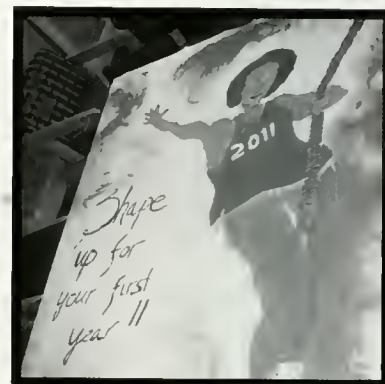 2011
Shape
up for
your first
year !!